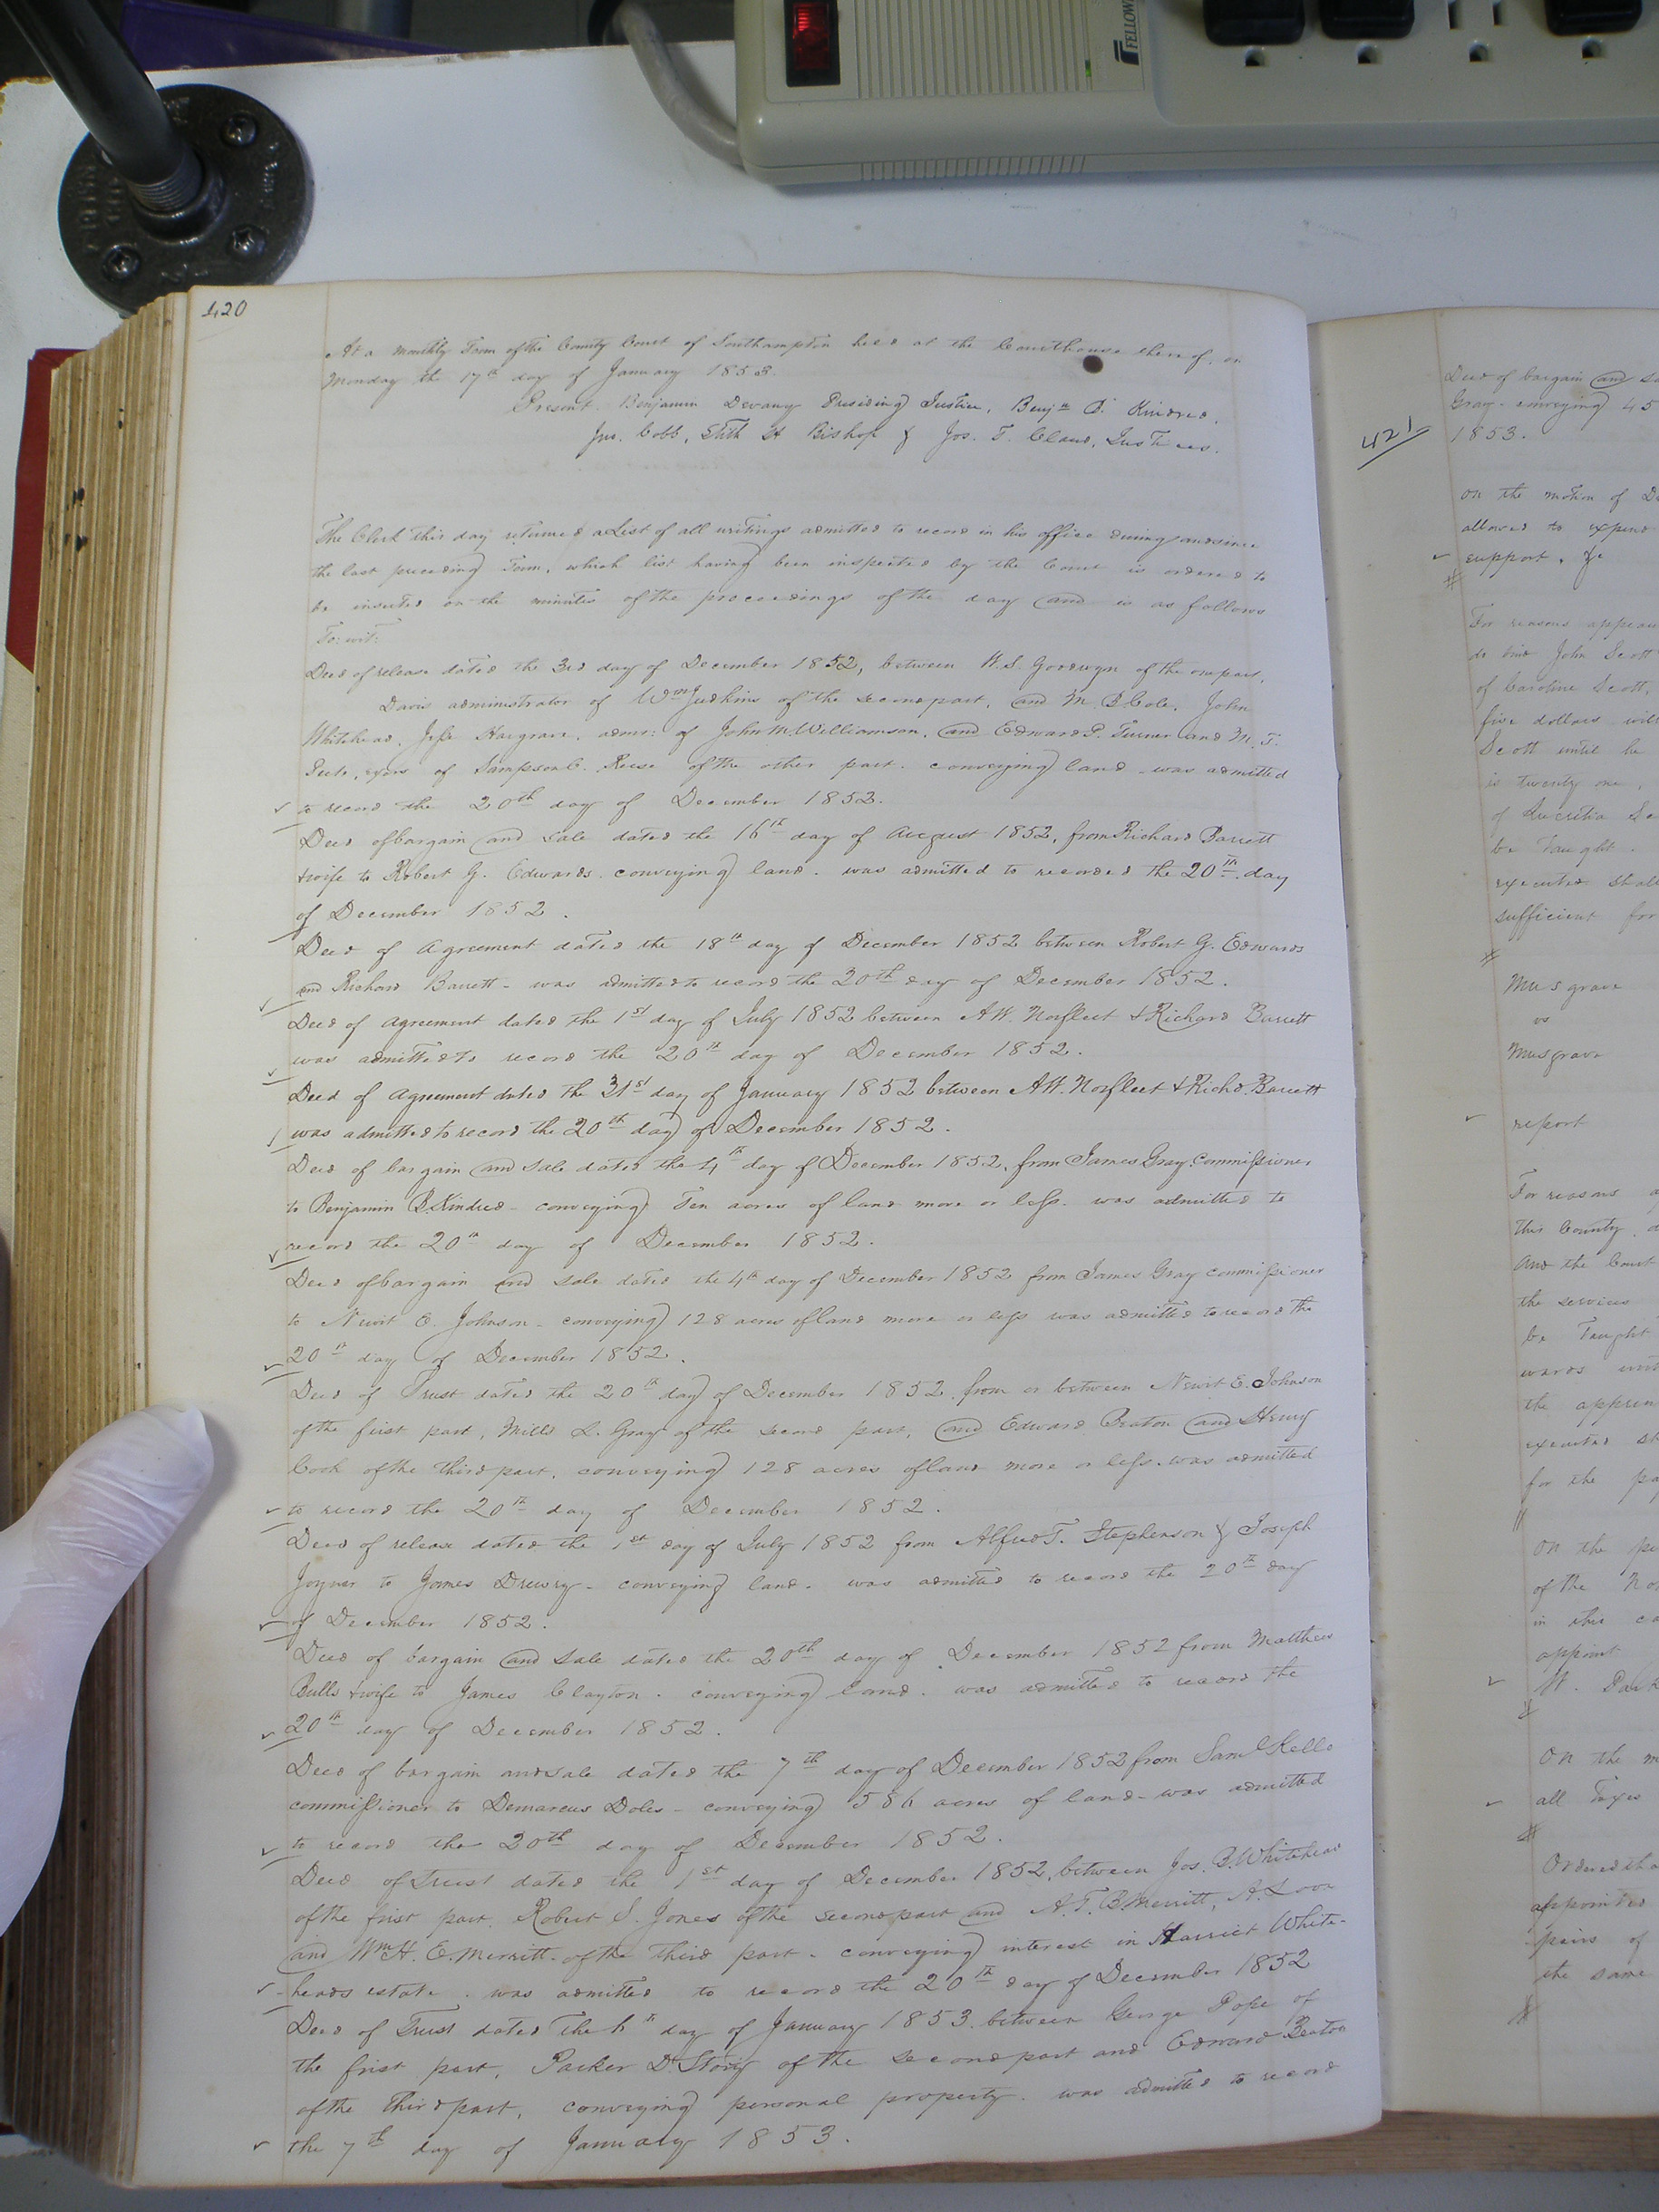 FELLOW
420
At a monthly Term of the County Court of Southampton held at the Courthouse thereof, on
Monday the 17th day of January 1853.
Present. Benjamin Devany Presiding Justice, Benjn B. Kindred,
Jno. Cobb, Stith H Bishop & Jos. T. Claud, Justices.
The Clerk this day returned a List of all writings admitted to record in his office during and since
the last preceding Term, which list having been inspected by the Court is ordered to
be inserted on the minutes of the proceedings of the day and is as follows
To: wit:
Deed of release dated the 3rd day of December 1852, between W. S. Goodwyn of the one part,
Davis administrator of Wm Judkins of the second part, and M. B Cole, John
Whitehead, Jesse Hargrave, admr: of John M Williamson, and Edward P. Turner and M. T.
exors of Sampson C. Reese of the other part. conveying land - was admitted
to record the 20th day of December 1852.
Deed of bargain and sale dated the 16th day of August 1852, from Richard Barrett
& wife to Robert G. Edwards. conveying land. was admitted to recorded the 20th day
of December 1852.
Deed of Agreement dated the 18th day of December 1852 between Robert G. Edwards
and Richard Barrett - was admitted to record the 20th day of December 1852.
Deed of Agreement dated the 1st day of July 1852 between A W. Norfleet & Richard Barrett
was admitted to record the 20th day of December 1852.
Deed of Agreement dated the 31st day of January 1852 between A W. Norfleet & Richd. Barrett
was admitted to record the 20th day of December 1852.
Deed of bargain and sale dated the 4th day of December 1852, from James Gray, Commissioner
to Benjamin B. Kindred - conveying Ten acres of land more or less. was admitted to
record the 20th day of December 1852.
Deed of bargain and sale dated the 4th day of December 1852 from James Gray commissioner
to Newit E. Johnson - conveying 128 acres of land more or less was admitted to record the
20th day of December 1852.
Deed of Trust dated the 20th day of December 1852 from or between Newit E. Johnson
of the first part, Mills L. Gray of the second part, and Edward Beaton and Henry
Cook of the third part, conveying 128 acres of land more or less. was admitted
to record the 20th day of December 1852.
Deed of release dated the 1st day of July 1852 from Alfred T. Stephenson & Joseph
Joyner to James Drewry - conveying land. was admitted to record the 20th day
of December 1852.
Deed of bargain and sale dated the 20th day of December 1852 from Matthew
Bulls & wife to James Clayton. conveying land. was admitted to record the
20th day of December 1852.
Deed of bargain and sale dated the 7th day of December 1852 from Saml Kello
commissioner to Demarcus Doles - conveying 586 acres of land - was admitted
to record the 20th day of December 1852.
Deed of Trust dated the 1st day of December 1852, between Jos. B. Whitehead
of the first part, Robert S. Jones of the second part and A. T. B. Merritt, A. Love
and Wm H. E. Merritt of the third part - conveying interest in Harriet White-
heads estate. was admitted to record the 20th day of December 1852
Deed of Trust dated the 6th day of January 1853. between George Pope of
the first part, Parker D. Story of the second part and Edward Beaton
of the third part, conveying personal property. was admitted to record
the 7th day of January 1853.
421
Deed of bargain and
Gray - conveying 45
1853.
on the motion of
allowed to expend
support. &c
For reasons
do bind John Scott
of Caroline Scott,
five dollars
Scott until he
is twenty one,
of Lucretia
be Taught.
executed shall
sufficient for
Musgrave
vs
Musgrave
report
For reasons
this County,
And the Court
the services
be Taught
wards
the
executed
for the
On the
of the
in this
appoint
W.
On the
all Taxes
Ordered
appointed
pairs of
the same